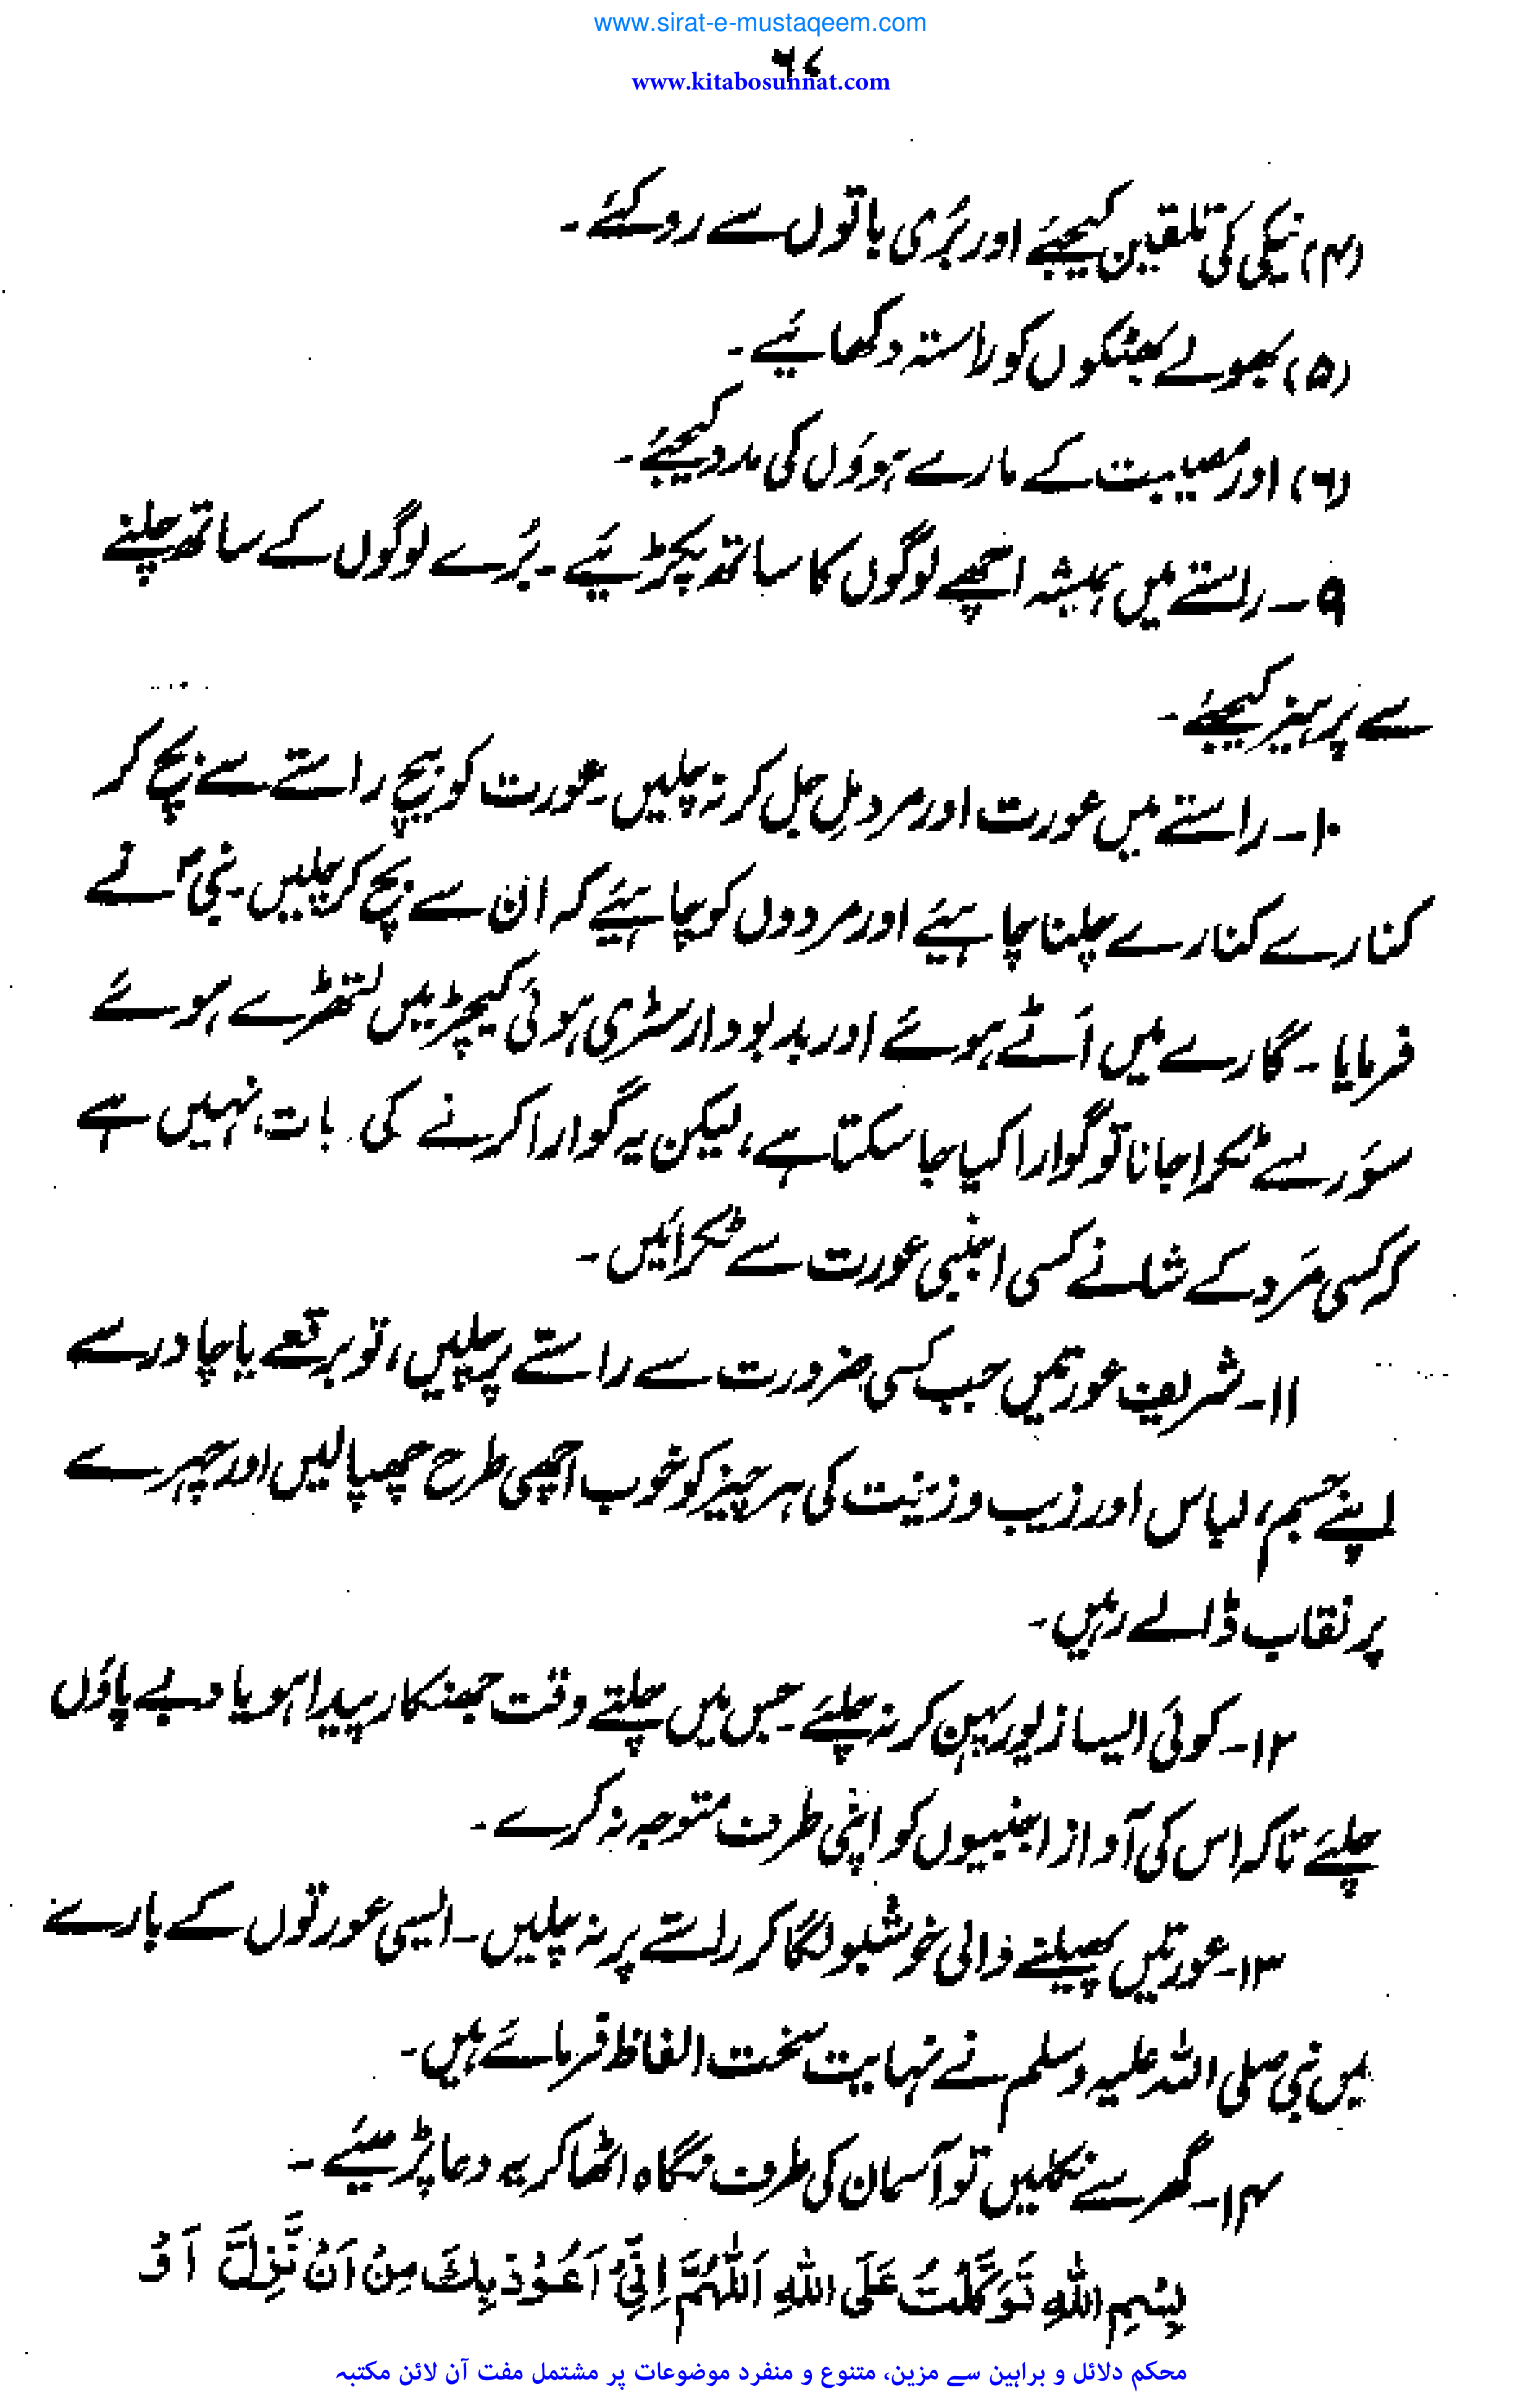 www.sirat-e-mustaqeem.com
۶۷
www.kitabosunnat.com
(۴) نیکی کی تلقین کیجئے اور بُری باتوں سے روکئے۔
(۵) بھولے بھٹکوں کو راستہ دکھائیے۔
(۶) اور مصیبت کے مارے ہوؤں کی مدد کیجئے۔
۹۔ راستے میں ہمیشہ اچھے لوگوں کا ساتھ پکڑئیے۔ بُرے لوگوں کے ساتھ چلنے
سے پرہیز کیجئے۔
۱۰۔ راستے میں عورت اور مرد مِل جل کر نہ چلیں۔ عورت کو بیچ راستے سے بچ کر
کنارے کنارے چلنا چاہیئے اور مردوں کو چاہیئے کہ ان سے بچ کر چلیں۔ نبیؐ نے
فرمایا۔ گارے میں اَٹے ہوئے اور بدبودار سٹری ہوئی کیچڑ میں لتھڑے ہوئے
سوَر سے ٹکرا جانا تو گوارا کیا جا سکتا ہے، لیکن یہ گوارا کرنے کی بات نہیں ہے
کہ کسی مَرد کے شانے کسی اجنبی عورت سے ٹکرائیں۔
۱۱۔ شریف عورتیں جب کسی ضرورت سے راستے پر چلیں، تو برقعے یا چادر سے
اپنے جسم، لباس اور زیب و زینت کی ہر چیز کو خوب اچھی طرح چھپا لیں اور چہرے
پر نقاب ڈالے رہیں۔
۱۲۔ کوئی ایسا زیور پہن کر نہ چلئے۔ جس میں چلتے وقت جھنکار پیدا ہو یا دبے پاؤں
چلئے تاکہ اس کی آواز اجنبیوں کو اپنی طرف متوجہ نہ کرے۔
۱۳۔ عورتیں پھیلنے والی خوشبو لگا کر راستے پر نہ چلیں۔ ایسی عورتوں کے بارے
میں نبی صلی اللہ علیہ وسلم نے نہایت سخت الفاظ فرمائے ہیں۔
۱۴۔ گھر سے نکلیں تو آسمان کی طرف نگاہ اٹھا کر یہ دعا پڑھیئے۔
بِسْمِ اللّٰهِ تَوَكَّلْتُ عَلَى اللّٰهِ اَللّٰهُمَّ اِنِّیْ اَعُوْذُ بِكَ مِنْ اَنْ نَّزِلَّ اَوْ
محکم دلائل و براہین سے مزین، متنوع و منفرد موضوعات پر مشتمل مفت آن لائن مکتبہ